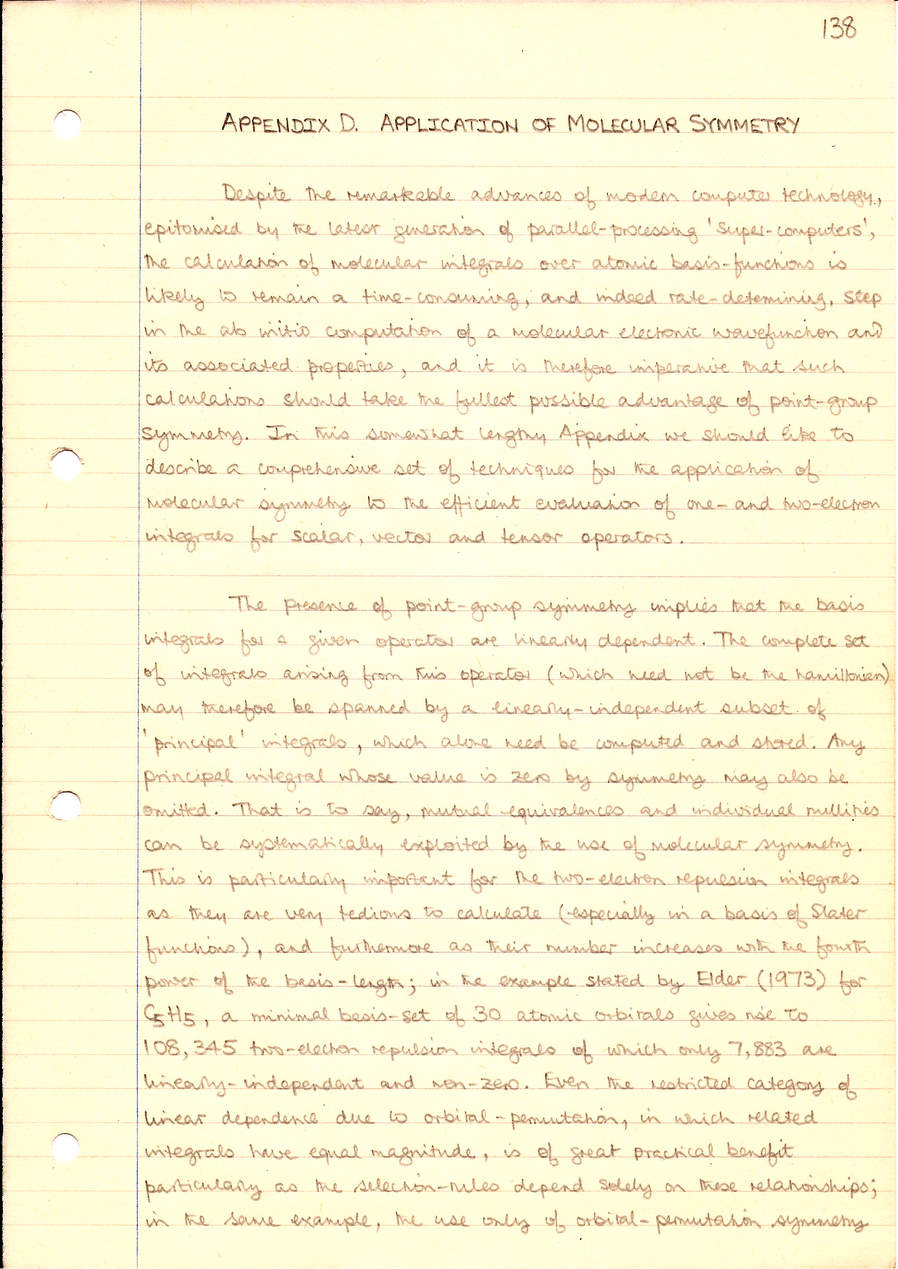 138
APPENDIX D. APPLICATION OF MOLECULAR SYMMETRY
Despite the remarkable advances of modern computer technology,
epitomised by the latest generation of parallel-processing 'super-computers',
the calculation of molecular integrals over atomic basis-functions is
likely to remain a time-consuming, and indeed rate-determining, step
in the ab initio computation of a molecular electronic wavefunction and
its associated properties, and it is therefore imperative that such
calculations should take the fullest possible advantage of point-group
symmetry. In this somewhat lengthy Appendix we should like to
describe a comprehensive set of techniques for the application of
molecular symmetry to the efficient evaluation of one- and two-electron
integrals for scalar, vector and tensor operators.
The presence of point-group symmetry implies that the basis
integrals for a given operator are linearly dependent. The complete set
of integrals arising from this operator (which need not be the hamiltonian)
may therefore be spanned by a linearly-independent subset of
'principal' integrals, which alone need be computed and stored. Any
principal integral whose value is zero by symmetry may also be
omitted. That is to say, mutual equivalences and individual nullities
can be systematically exploited by the use of molecular symmetry.
This is particularly important for the two-electron repulsion integrals
as they are very tedious to calculate (especially in a basis of Slater
functions), and furthermore as their number increases with the fourth
power of the basis-length; in the example stated by Elder (1973) for
C5H5, a minimal basis-set of 30 atomic orbitals gives rise to
108,345 two-electron repulsion integrals of which only 7,883 are
linearly-independent and non-zero. Even the restricted category of
linear dependence due to orbital-permutation, in which related
integrals have equal magnitude, is of great practical benefit
particularly as the selection-rules depend solely on these relationships;
in the same example, the use only of orbital-permutation symmetry